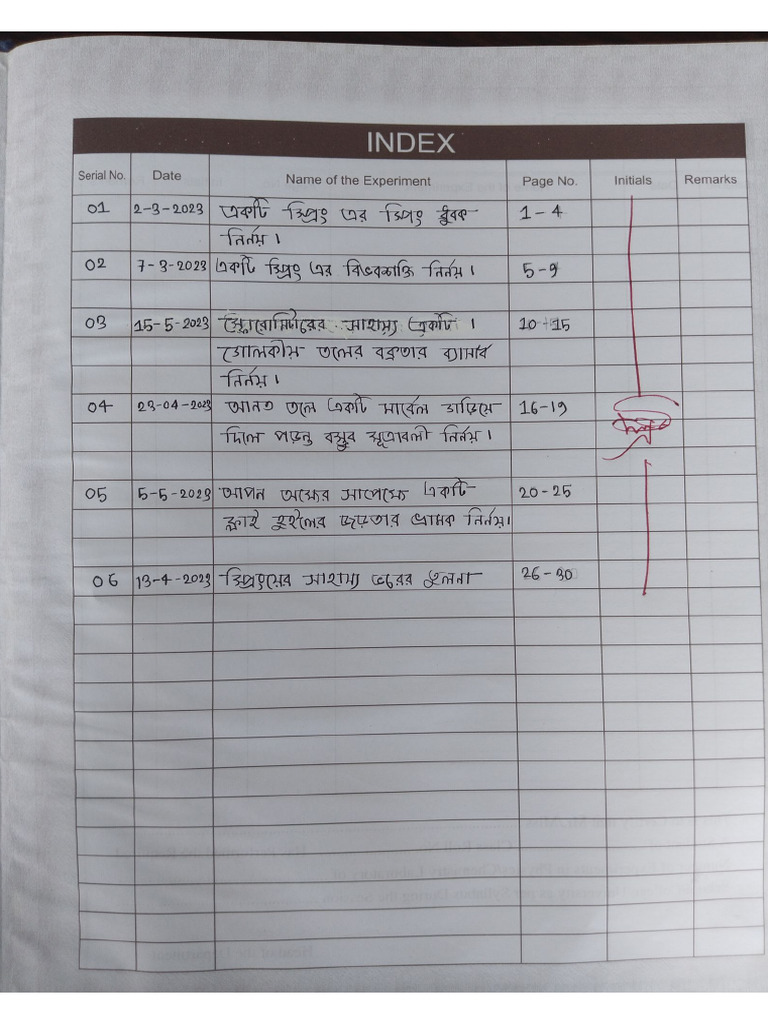 INDEX
Serial No. Date Name of the Experiment Page No. Initials Remarks
01 2-3-2023 একটি স্প্রিং এর স্প্রিং ধ্রুবক 1-4
নির্নয়।
02 7-3-2023 একটি স্প্রিং এর বিভবশক্তি নির্নয়। 5-9
03 15-5-2023 স্ফেরোমিটারের সাহায্যে একটি । 10-15
গোলকীয় তলের বক্রতার ব্যাসার্ধ
নির্নয়।
04 23-04-2023 আনত তলে একটি মার্বেল গড়িয়ে 16-19
দিলে পড়ন্ত বস্তুর সূত্রাবলী নির্নয়।
05 5-5-2023 আপন অক্ষের সাপেক্ষে একটি 20-25
ফ্লাই হুইলের জড়তার ভ্রামক নির্নয়।
06 13-4-2023 স্প্রিংয়ের সাহায্যে ভরের তুলনা 26-30